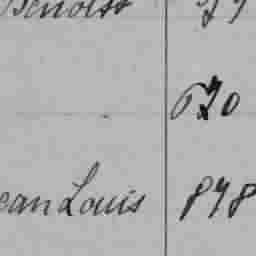 Benoist
670
ean Louis 848